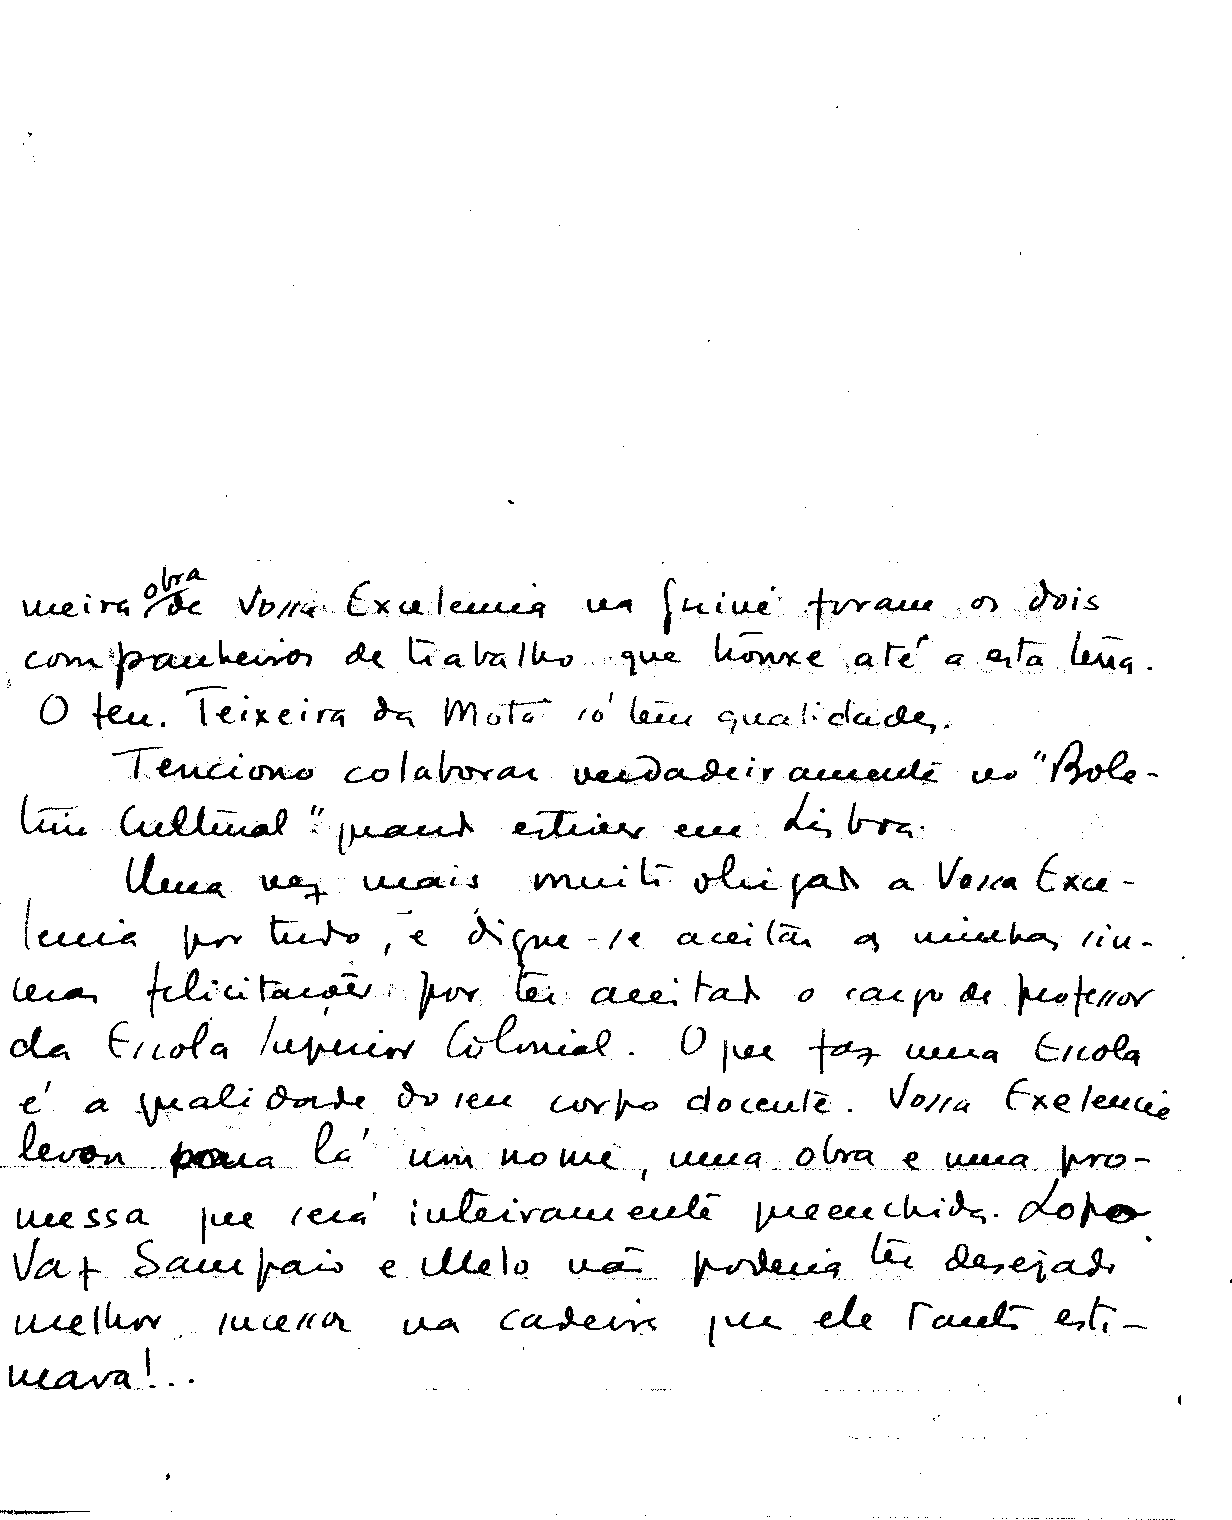 meira obra de Vossa Exelemcia na Guiné foram os dois
companheiros de trabalho que trouxe até a esta terra.
O ten. Teixeira da Mota só tem qualidades.
Tenciono colaborar verdadeiramente no "Bole-
tim Cultural" quando estiver em Lisboa.
Uma vez mais muito obrigado a Vossa Exce-
lencia por tudo, e digne-se aceitar as minhas sin-
ceras felicitações por ter aceitado o cargo de professor
da Escola Superior Colonial. O que faz uma Escola
é a qualidade do seu corpo docente. Vossa Exelencia
levou para lá um nome, uma obra e uma pro-
messa que será inteiramente preenchida. Lopo
Vaz Sampaio e Melo não poderia ter desejado
melhor sucessor na cadeira que ele tanto esti-
mava!..